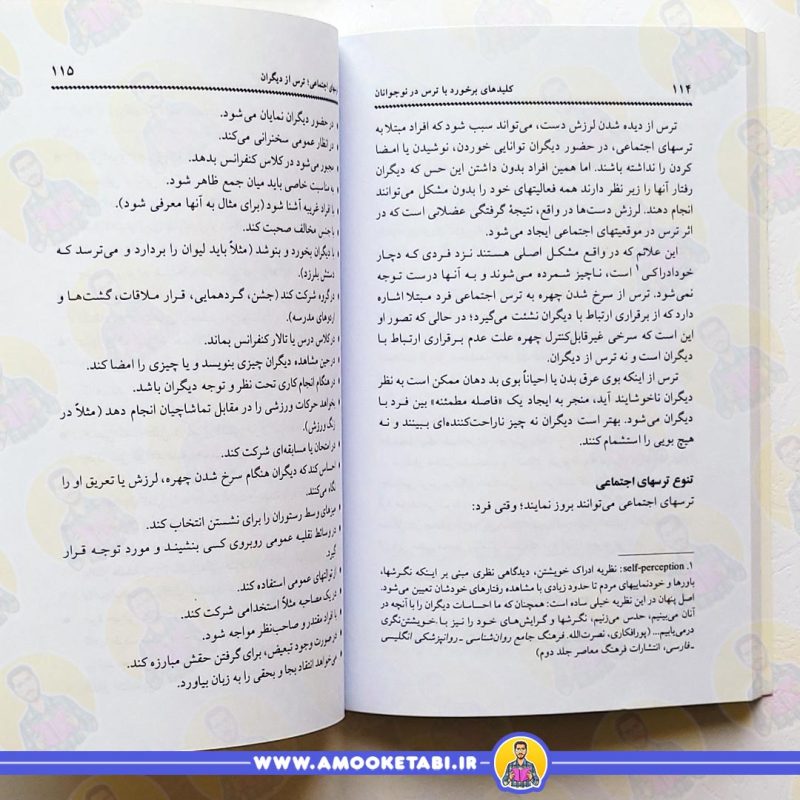 ۱۱۴
کلیدهای برخورد با ترس در نوجوانان
ترس از دیده شدن لرزش دست، می‌تواند سبب شود که افراد مبتلا به
ترسهای اجتماعی، در حضور دیگران توانایی خوردن، نوشیدن یا امضا
کردن را نداشته باشند. اما همین افراد بدون داشتن این حس که دیگران
رفتار آنها را زیر نظر دارند همه فعالیتهای خود را بدون مشکل می‌توانند
انجام دهند. لرزش دست‌ها در واقع، نتیجهٔ گرفتگی عضلانی است که در
اثر ترس در موقعیتهای اجتماعی ایجاد می‌شود.
این علائم که در واقع مشکل اصلی هستند نزد فردی که دچار
خودادراکی۱ است، ناچیز شمرده می‌شوند و به آنها درست توجه
نمی‌شود. ترس از سرخ شدن چهره به ترس اجتماعی فرد مبتلا اشاره
دارد که از برقراری ارتباط با دیگران نشئت می‌گیرد؛ در حالی که تصور او
این است که سرخی غیرقابل‌کنترل چهره علت عدم برقراری ارتباط با
دیگران است و نه ترس از دیگران.
ترس از اینکه بوی عرق بدن یا احیاناً بوی بد دهان ممکن است به نظر
دیگران ناخوشایند آید، منجر به ایجاد یک «فاصله مطمئنه» بین فرد با
دیگران می‌شود. بهتر است دیگران نه چیز ناراحت‌کننده‌ای ببینند و نه
هیچ بویی را استشمام کنند.
تنوع ترسهای اجتماعی
ترسهای اجتماعی می‌توانند بروز نمایند؛ وقتی فرد:
۱. self-perception: نظریه ادراک خویشتن، دیدگاهی نظری مبنی بر اینکه نگرشها،
باورها و خودنماییهای مردم تا حدود زیادی با مشاهده رفتارهای خودشان تعیین می‌شود.
اصل پنهان در این نظریه خیلی ساده است: همچنان که ما احساسات دیگران را با آنچه در
آنان می‌بینیم، حدس می‌زنیم، نگرشها و گرایش‌های خود را نیز با خویشتن‌نگری
درمی‌یابیم... (پورافکاری، نصرت‌الله. فرهنگ جامع روان‌شناسی - روانپزشکی انگلیسی
-فارسی، انتشارات فرهنگ معاصر جلد دوم)
اجتماعی؛ ترس از دیگران
۱۱۵
در حضور دیگران نمایان می‌شود.
در انظار عمومی سخنرانی می‌کند.
مجبور می‌شود در کلاس کنفرانس بدهد.
به مناسبت خاصی باید میان جمع ظاهر شود.
با افراد غریبه آشنا شود (برای مثال به آنها معرفی شود).
با جنس مخالف صحبت کند.
با دیگران بخورد و بنوشد (مثلاً باید لیوان را بردارد و می‌ترسد که
دستش بلرزد).
در گروه شرکت کند (جشن، گردهمایی، قرار ملاقات، گشت‌ها و
اردوهای مدرسه).
در کلاس درس یا تالار کنفرانس بماند.
در حین مشاهده دیگران چیزی بنویسد و یا چیزی را امضا کند.
در هنگام انجام کاری تحت نظر و توجه دیگران باشد.
بخواهد حرکات ورزشی را در مقابل تماشاچیان انجام دهد (مثلاً در
زنگ ورزش).
در امتحان یا مسابقه‌ای شرکت کند.
احساس کند که دیگران هنگام سرخ شدن چهره، لرزش یا تعریق او را
نگاه می‌کنند.
میزهای وسط رستوران را برای نشستن انتخاب کند.
در وسائط نقلیه عمومی روبروی کسی بنشیند و مورد توجه قرار
گیرد.
از توالتهای عمومی استفاده کند.
در یک مصاحبه مثلاً استخدامی شرکت کند.
با افراد مقتدر و صاحب‌نظر مواجه شود.
در صورت وجود تبعیض، برای گرفتن حقش مبارزه کند.
می‌خواهد انتقاد بجا و بحقی را به زبان بیاورد.
WWW.AMOOKETABI.IR